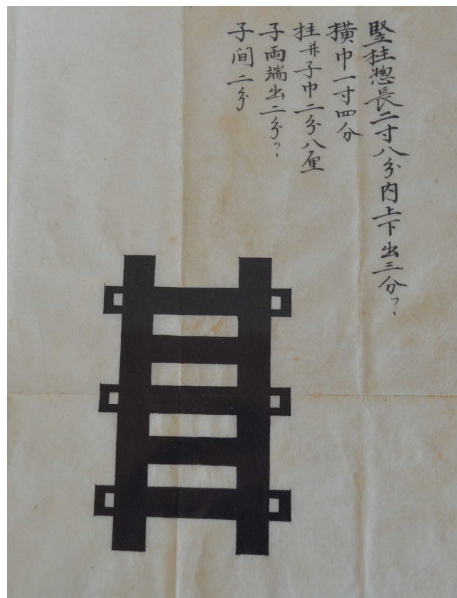 竪柱惣長二寸八分内上下出三分ツヽ
横巾一寸四分
柱并子巾二分八厘
子両端出二分ツヽ
子间二分